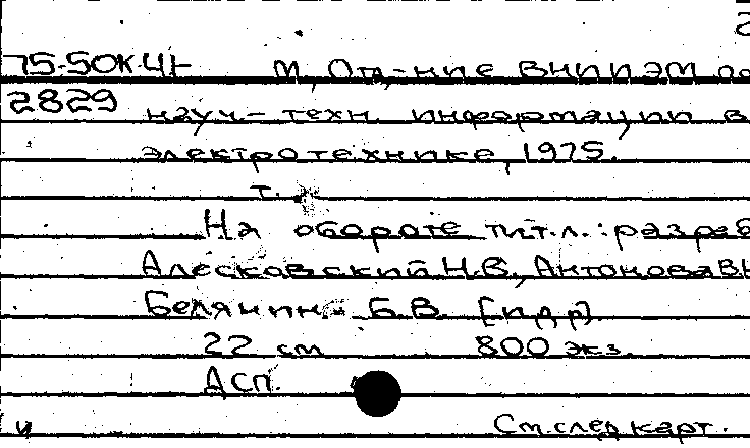 75-50к.41- М, Отд-ние ВНИИЭМ по
2829 науч.- техн. информации в
электротехнике, 1975.
т.
На обороте тит.л.: разраб
Алесковский Н.В., Антонова В.Н
Белянин Б.В. [и др]
22 см 800 экз.
ДСП.
и См. след карт.